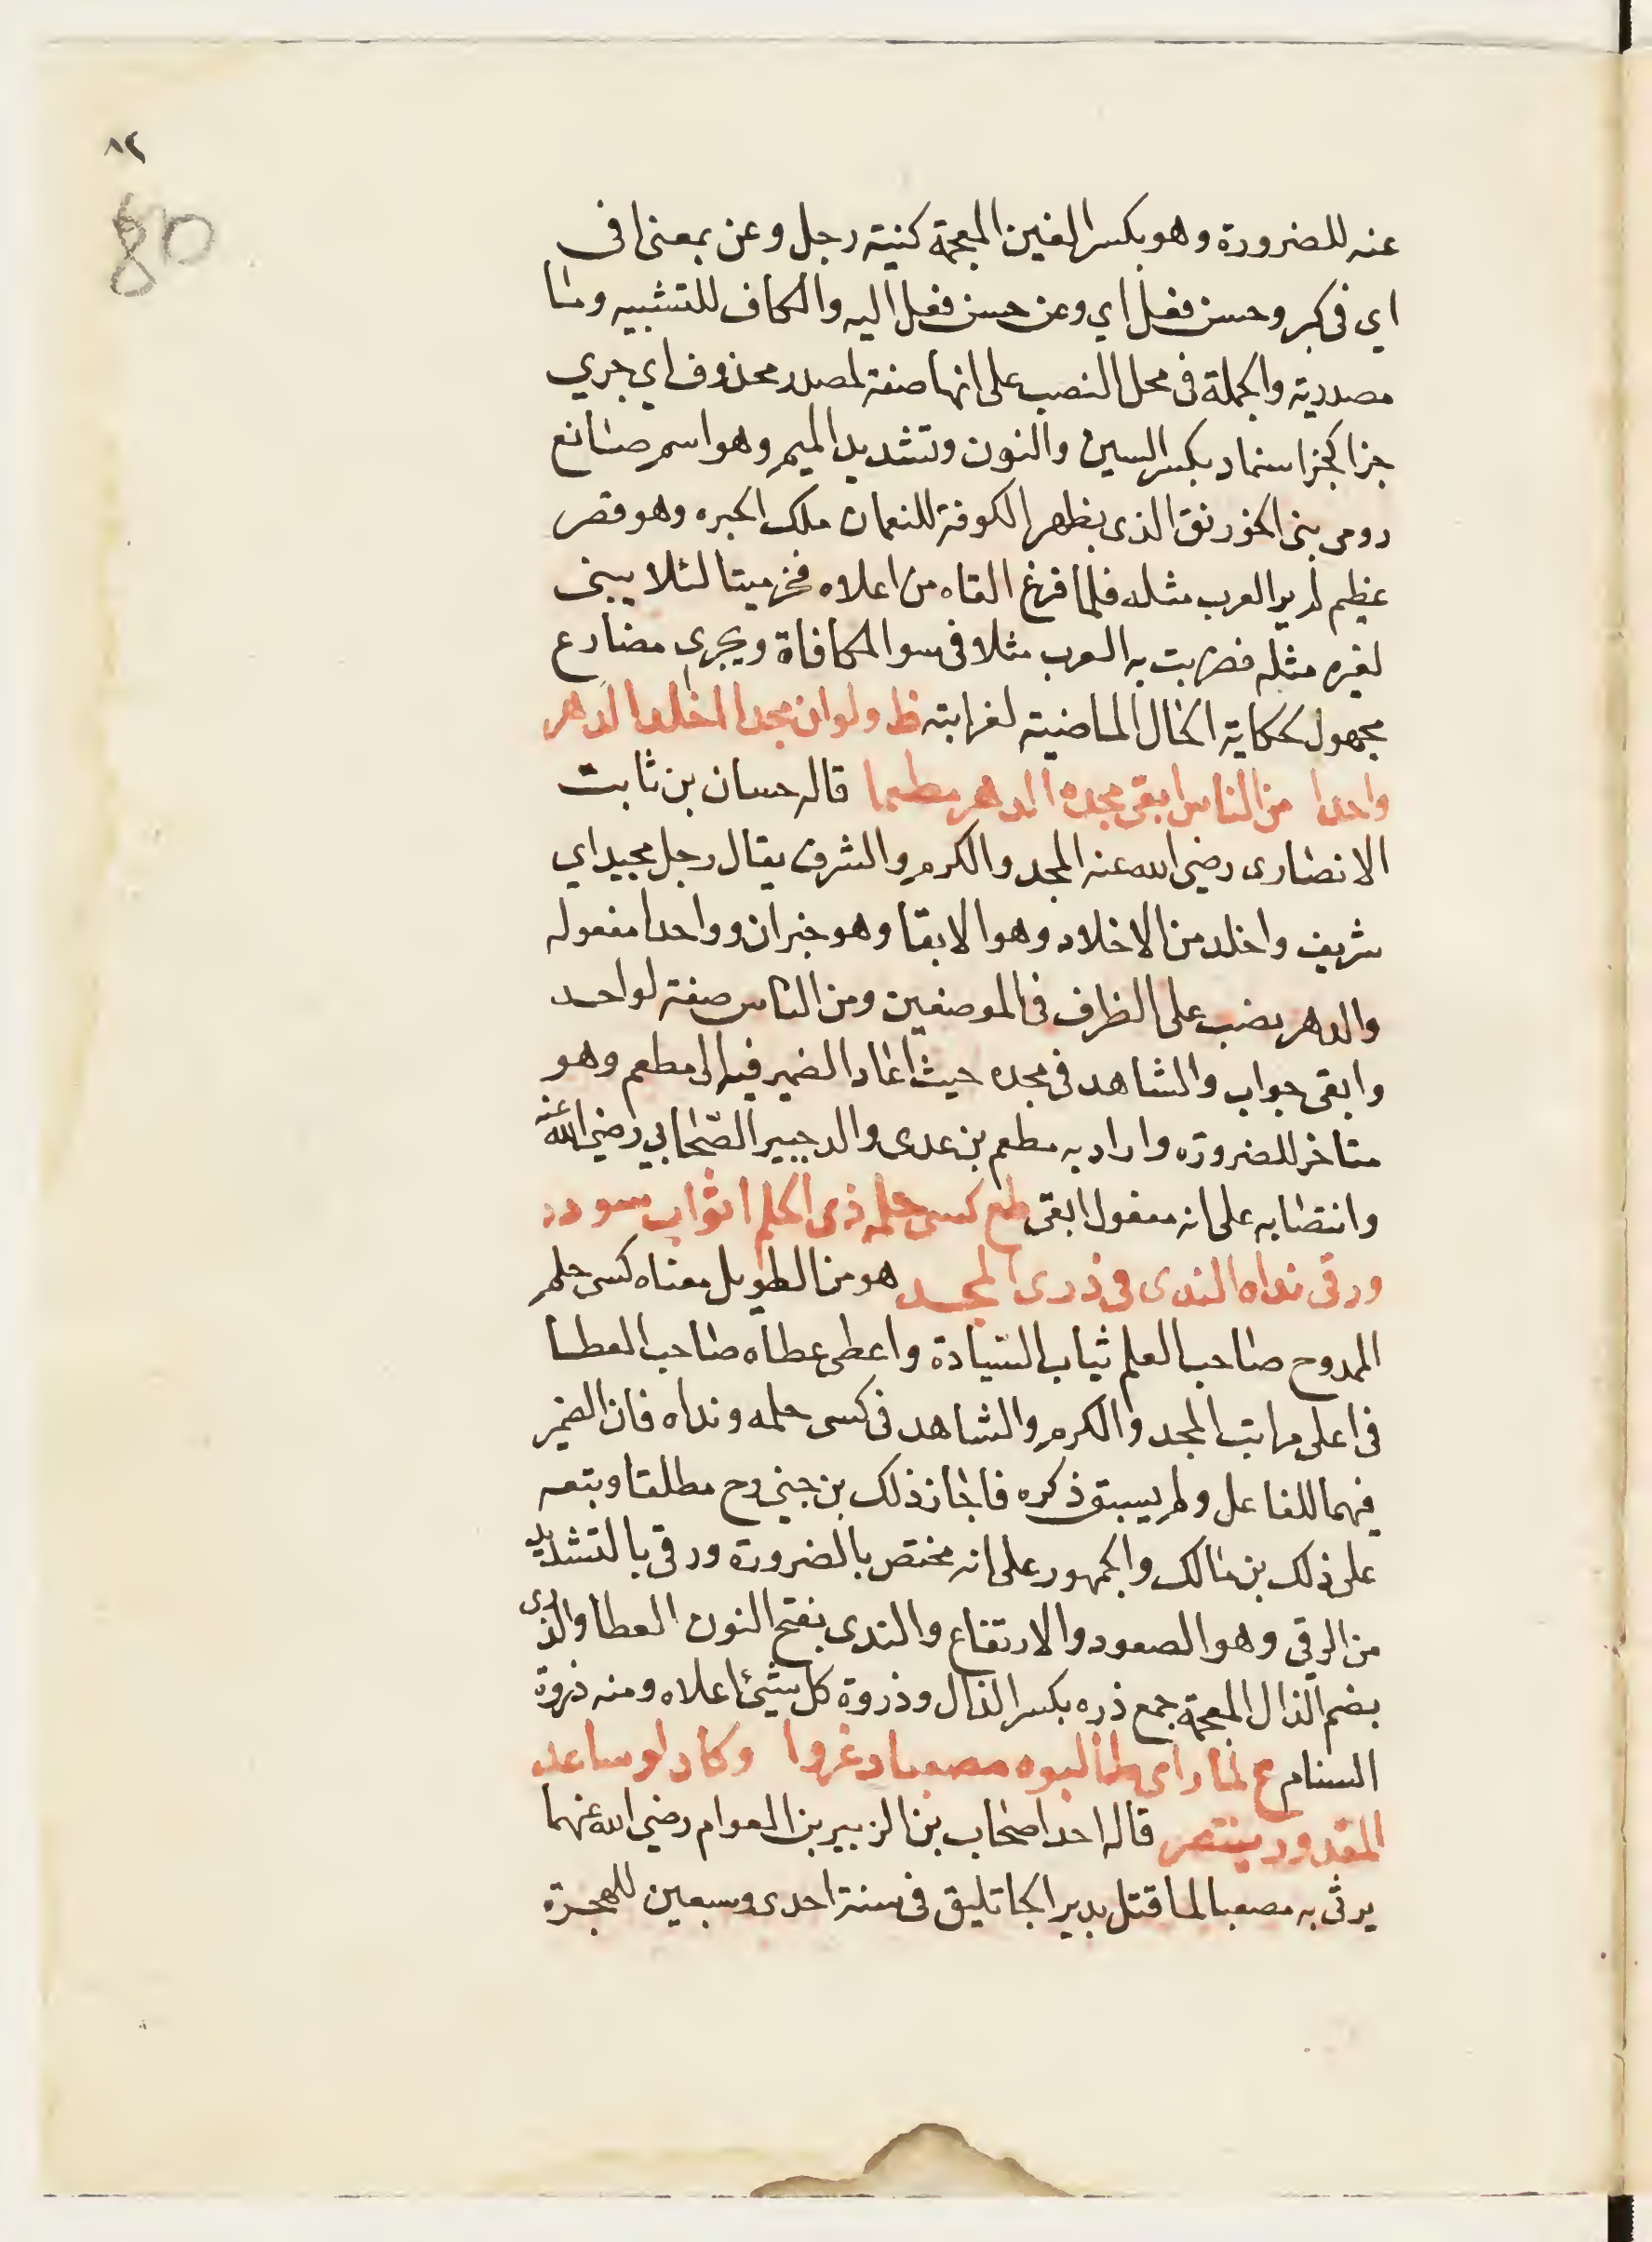 ٨٢
80
عنه للضرورة وهو بكسر الغين المعجمة كنية رجل وعن بمعنى في
اي في كبر وحسن فعل اي وعن حسن فعل اليه والكاف للتشبيه وما
مصدرية والجملة في محل النصب على انها صفة لمصدر محذوف اي جري
جزا كجزا سنمار بكسر السين والنون وتشديد الميم وهو اسم صانع
رومى بنى الخورنق الذى بظهر الكوفة للنعمان ملك الحيره وهو قصر
عظيم لم ير العرب مثله فلما فرغ القاه من اعلاه فخر ميتا لئلا يبنى
لغيره مثله فضربت به العرب مثلا في سوا المكافاة ويجرى مضارع
مجهول لحكاية الحال الماضية لغرابته ظ ولو ان مجدا اخلد الدهر
واحدا من الناس ابقى مجده الدهر مطعما قاله حسان بن ثابت
الانصارى رضي الله عنه المجد والكرم والشرف يقال رجل مجيد اي
شريف واخلد من الاخلاد وهو الابقا وهو خبر ان وواحدا مفعوله
والدهر نصب على الظرف في الموضعين ومن الناس صفة لواحد
وابقى جواب والشاهد في مجده حيث اعاد الضمير فيه الى مطعم وهو
متاخر للضرورة واراد به مطعم بن عدى والد جبير الصحابي رضي الله عنه
وانتصابه على انه مفعول ابقى طع كسى حلمه ذى الحلم اثواب سودد
ورقى نداه الندى في ذرى المجد هو من الطويل معناه كسى حلم
الممدوح صاحب العلم ثياب السيادة واعطى عطاه صاحب العطا
في اعلى مراتب المجد والكرم والشاهد في كسى حلمه ونداه فان الضمير
فيهما للفاعل ولم يسبق ذكره فاجاز ذلك بن جنى وح مطلقا وبتعه
على ذلك بن مالك والجمهور على انه مختص بالضرورة ورقى بالتشديد
من الرقي وهو الصعود والارتفاع والندى بفتح النون العطا والذرى
بضم الذال المعجمة جمع ذره بكسر الذال وذروة كل شيئ اعلاه ومنه ذروة
السنام ع لما راى طالبوه مصعبا دعروا وكاد لو ساعد
المقدور ينتصر قاله احد اصحاب بن الزبير بن العوام رضي الله عنهما
يرثى به مصعبا لما قتل بدير الجاثليق في سنة احدى وسبعين للهجرة